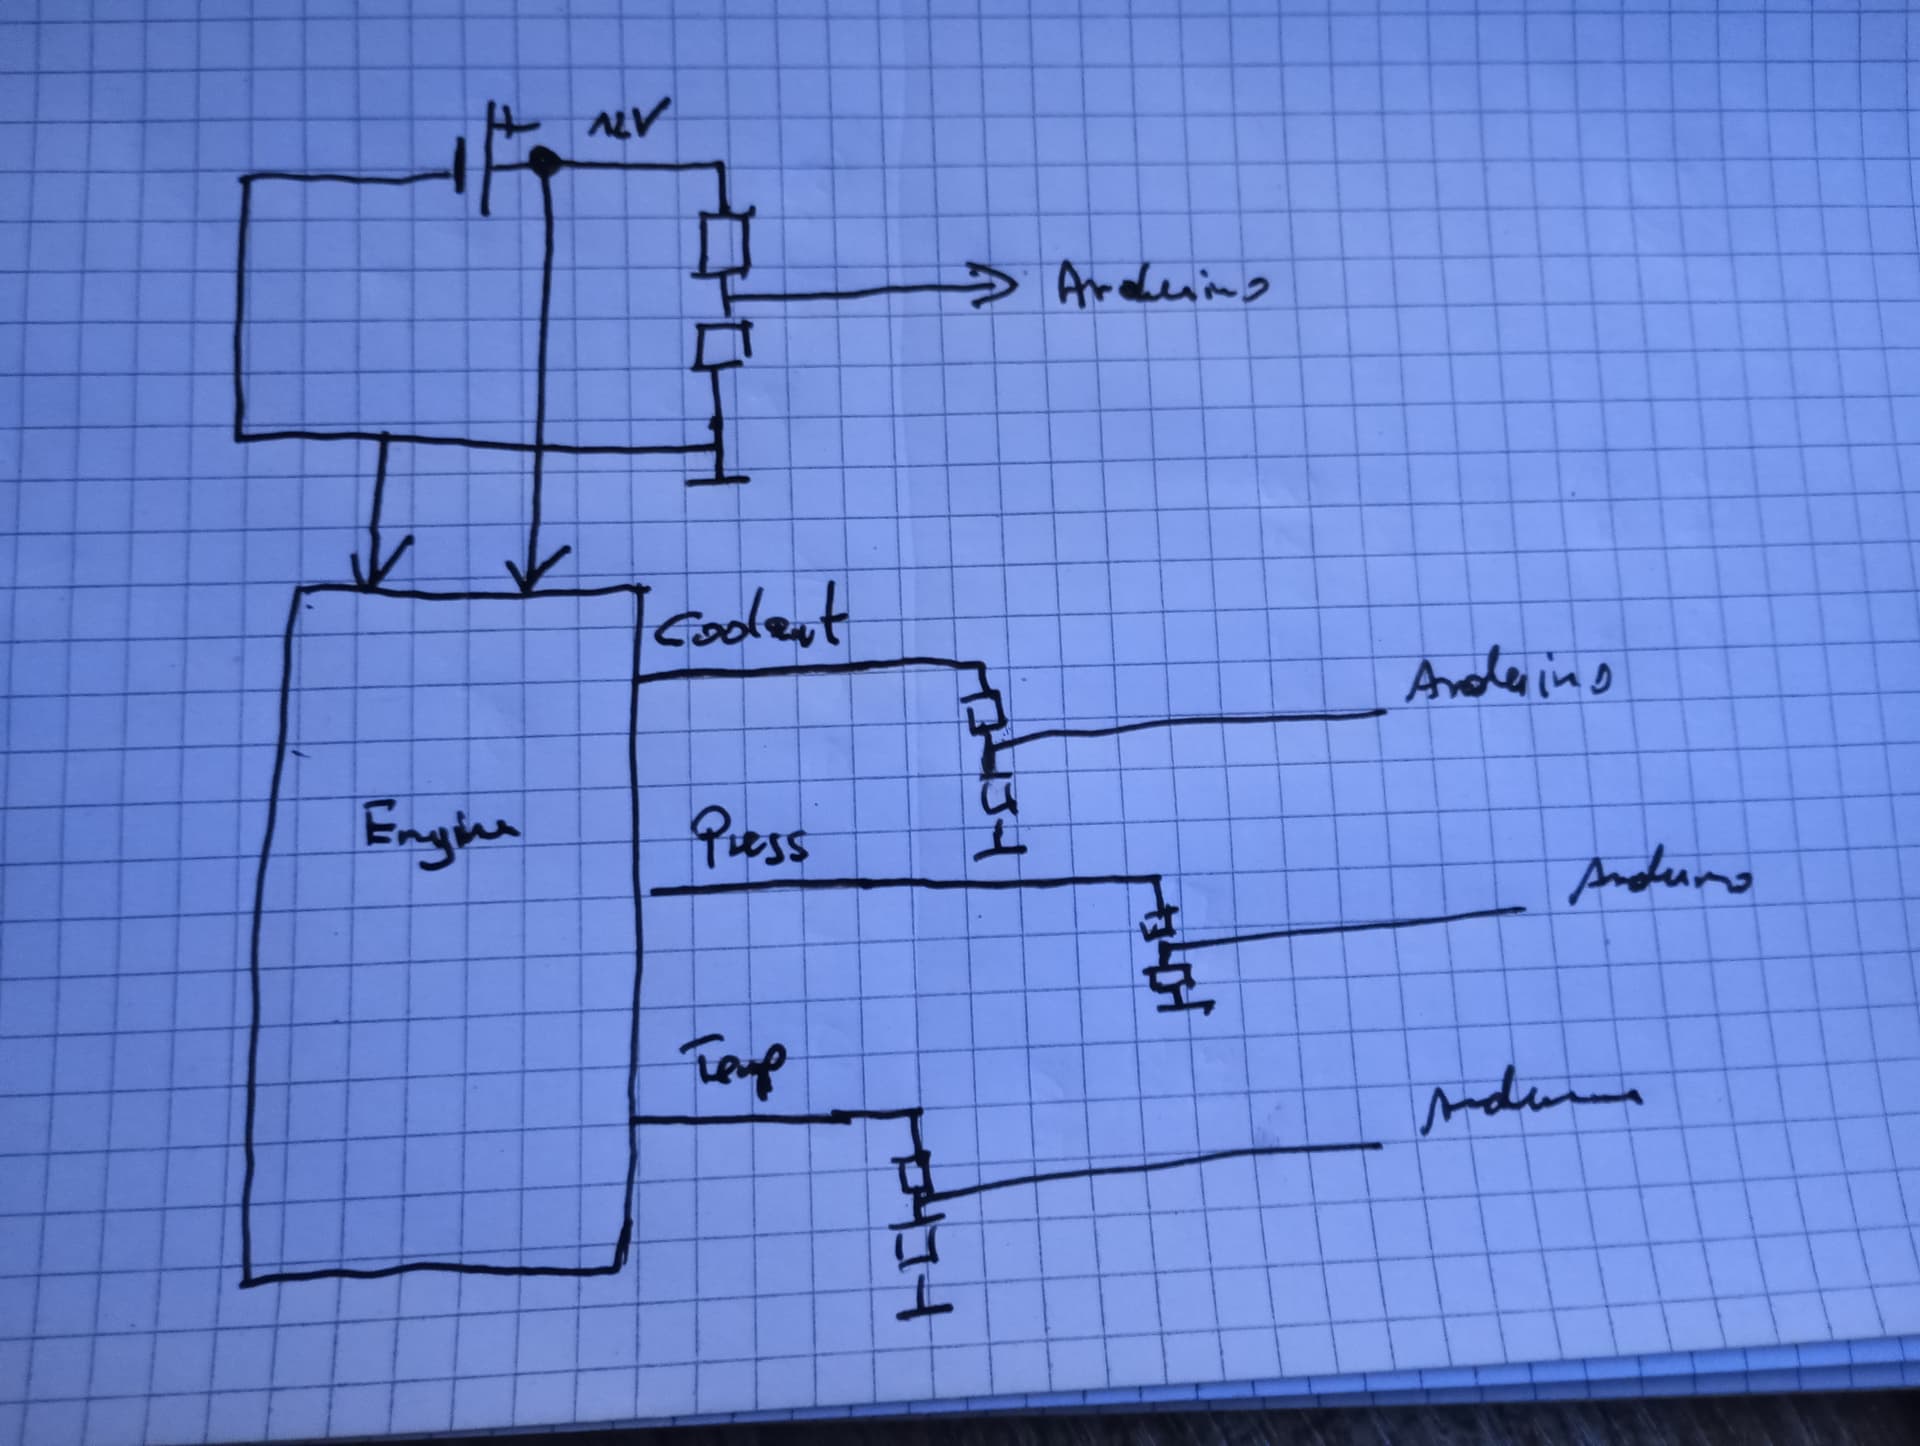 + 12V
Arduino
Coolant
Arduino
Engine
Press
Arduino
Temp
Arduino